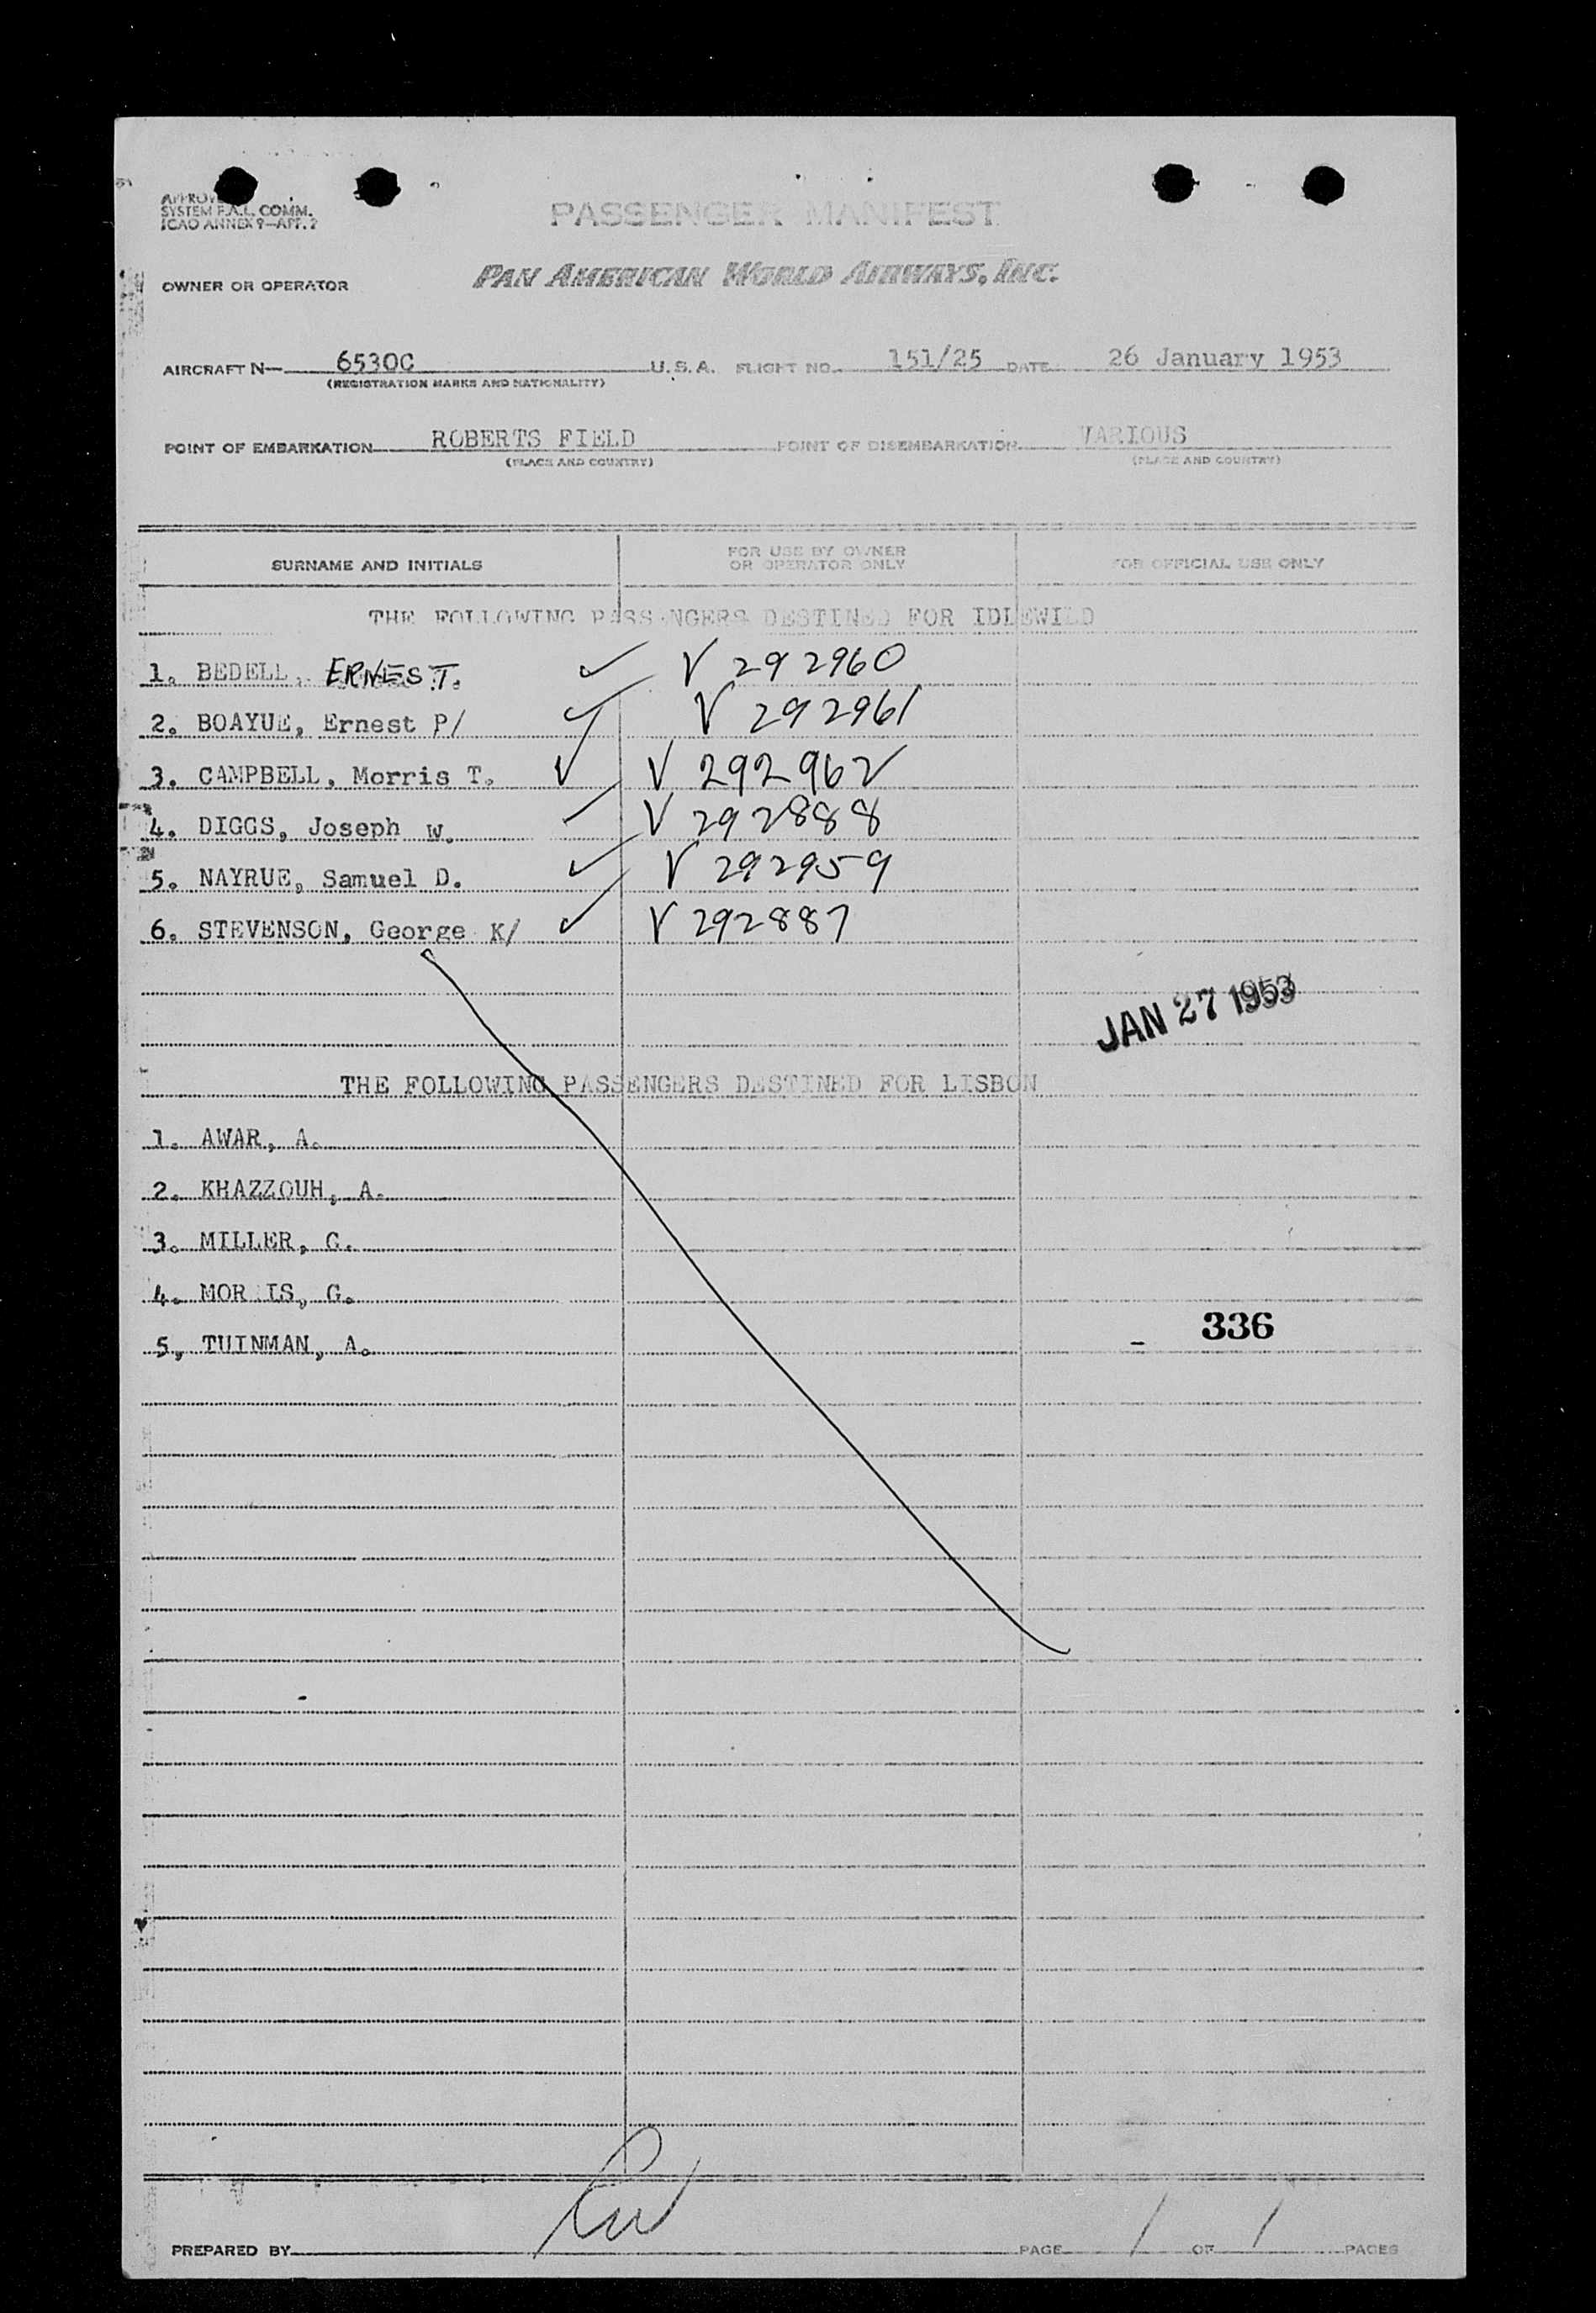 APPROVED
SYSTEM F.A.L. COMM.
ICAO ANNEX 9—APP. 2
PASSENGER MANIFEST
OWNER OR OPERATOR PAN AMERICAN WORLD AIRWAYS, INC.
AIRCRAFT N— 6530C U.S.A. FLIGHT NO. 151/25 DATE 26 January 1953
(REGISTRATION MARKS AND NATIONALITY)
POINT OF EMBARKATION ROBERTS FIELD POINT OF DISEMBARKATION VARIOUS
(PLACE AND COUNTRY) (PLACE AND COUNTRY)
SURNAME AND INITIALS FOR USE BY OWNER OR OPERATOR ONLY FOR OFFICIAL USE ONLY
THE FOLLOWING PASSENGERS DESTINED FOR IDLEWILD
1. BEDELL, ERNEST. V 292960
2. BOAYUE, Ernest P/ V 292961
3. CAMPBELL, Morris T. V 292962
4. DIGGS, Joseph W. V 292888
5. NAYRUE, Samuel D. V 292959
6. STEVENSON, George K/ V 292887
JAN 27 1953
THE FOLLOWING PASSENGERS DESTINED FOR LISBON
1. AWAR, A.
2. KHAZZOUH, A.
3. MILLER, G.
4. MOR IS, G.
5, TUINMAN, A.
336
PREPARED BY PAGE 1 OF 1 PAGES